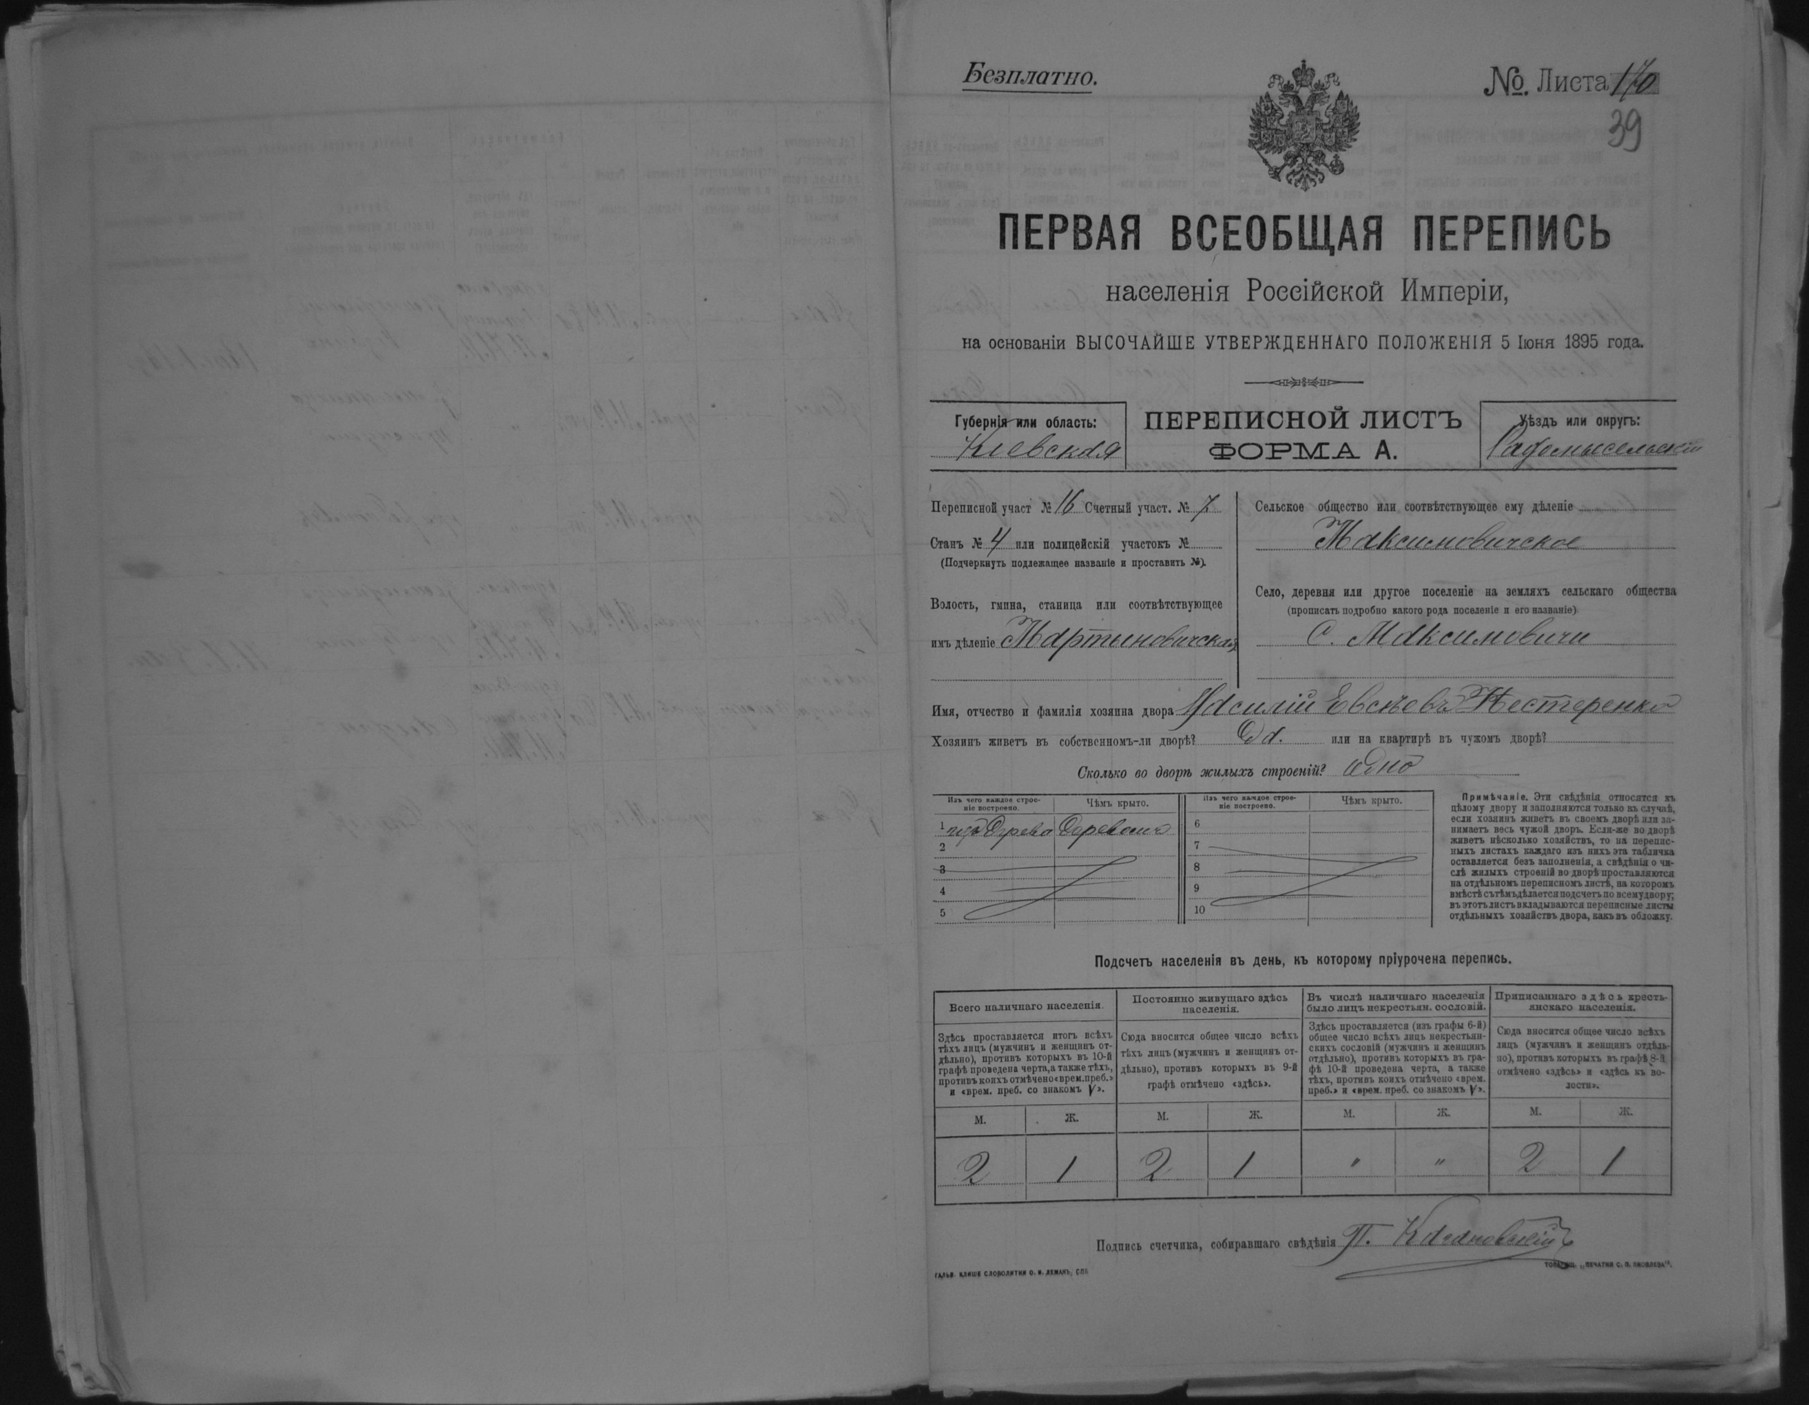 Безплатно.
№. Листа 170
39
ПЕРВАЯ ВСЕОБЩАЯ ПЕРЕПИСЬ
населенія Россійской Имперіи,
на основаніи ВЫСОЧАЙШЕ УТВЕРЖДЕННАГО ПОЛОЖЕНІЯ 5 Іюня 1895 года.
Губернія или область:
Кіевская
ПЕРЕПИСНОЙ ЛИСТЪ
ФОРМА А.
Уѣздъ или округъ:
Радомысельскій
Переписной участ № 16 Счетный участ. № 7
Станъ № 4 или полицейскій участокъ №
(Подчеркнуть подлежащее названіе и проставить №).
Волость, гмина, станица или соотвѣтствующее
имъ дѣленіе Мартыновичская
Сельское общество или соотвѣтствующее ему дѣленіе
Максимовичское
Село, деревня или другое поселеніе на земляхъ сельскаго общества
(прописать подробно какого рода поселеніе и его названіе)
С. Максимовичи
Имя, отчество и фамилія хозяина двора Василій Евсѣевъ Нестеренко
Хозяинъ живетъ въ собственномъ-ли дворѣ? Да. или на квартирѣ въ чужомъ дворѣ?
Сколько во дворѣ жилыхъ строеній? одно
Изъ чего каждое строе-
ніе построено.
Чѣмъ крыто.
1 изъ Дерева Деревомъ
2
3
4
5
Изъ чего каждое строе-
ніе построено.
Чѣмъ крыто.
6
7
8
9
10
Примѣчаніе. Эти свѣдѣнія относятся къ
цѣлому двору и заполняются только въ случаѣ,
если хозяинъ живетъ въ своемъ дворѣ или за-
нимаетъ весь чужой дворъ. Если-же во дворѣ
живетъ нѣсколько хозяйствъ, то на перепис-
ныхъ листахъ каждаго изъ нихъ эта табличка
оставляется безъ заполненія, а свѣдѣнія о чи-
слѣ жилыхъ строеній во дворѣ проставляются
на отдѣльномъ переписномъ листѣ, на которомъ
вмѣстѣ съ тѣмъ дѣлается подсчетъ по всему двору;
въ этотъ листъ вкладываются переписные листы
отдѣльныхъ хозяйствъ двора, какъ въ обложку.
Подсчетъ населенія въ день, къ которому пріурочена перепись.
Всего наличнаго населенія.
Здѣсь проставляется итогъ всѣхъ
тѣхъ лицъ (мужчинъ и женщинъ от-
дѣльно), противъ которыхъ въ 10-й
графѣ проведена черта, а также тѣхъ,
противъ коихъ отмѣчено «врем. преб.»
и «врем. преб. со знакомъ V».
М. Ж.
2 1
Постоянно живущаго здѣсь
населенія.
Сюда вносится общее число всѣхъ
тѣхъ лицъ (мужчинъ и женщинъ от-
дѣльно), противъ которыхъ въ 9-й
графѣ отмѣчено «здѣсь».
М. Ж.
2 1
Въ числѣ наличнаго населенія
было лицъ некрестьян. сословій.
Здѣсь проставляется (изъ графы 6-й)
общее число всѣхъ лицъ некрестьян-
скихъ сословій (мужчинъ и женщинъ
отдѣльно), противъ которыхъ въ гра-
фѣ 10-й проведена черта, а также
тѣхъ, противъ коихъ отмѣчено «врем.
преб.» и «врем. преб. со знакомъ V».
М. Ж.
" "
Приписаннаго здѣсь кресть-
янскаго населенія.
Сюда вносится общее число всѣхъ
лицъ (мужчинъ и женщинъ отдѣль-
но), противъ которыхъ въ графѣ 8-й
отмѣчено «здѣсь» и «здѣсь въ во-
лости».
М. Ж.
2 1
Подпись счетчика, собиравшаго свѣдѣнія П.
ГАЛЬВ. КЛИШЕ СЛОВОЛИТНИ О. И. ЛЕМАНЪ, СПБ.
ПЕЧАТНИ С. П. ЯКОВЛЕВА".